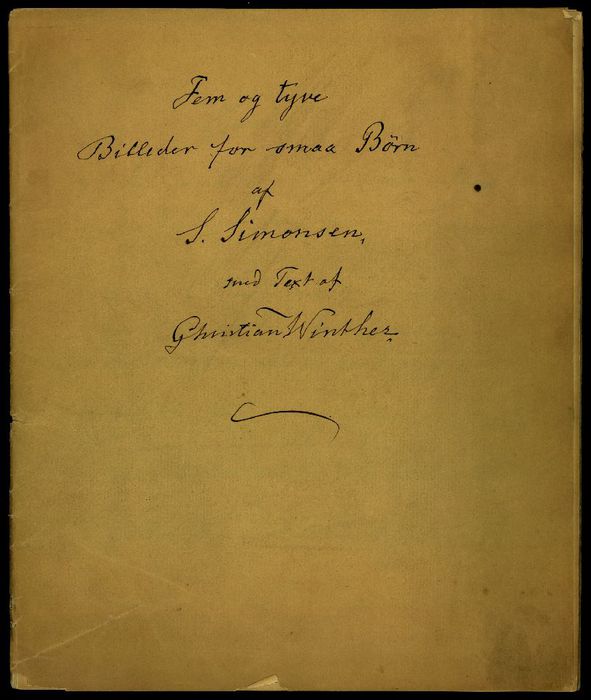 Fem og tyve
Billeder for smaa Börn
af
S. Simonsen,
med Text af
Christian Winther.